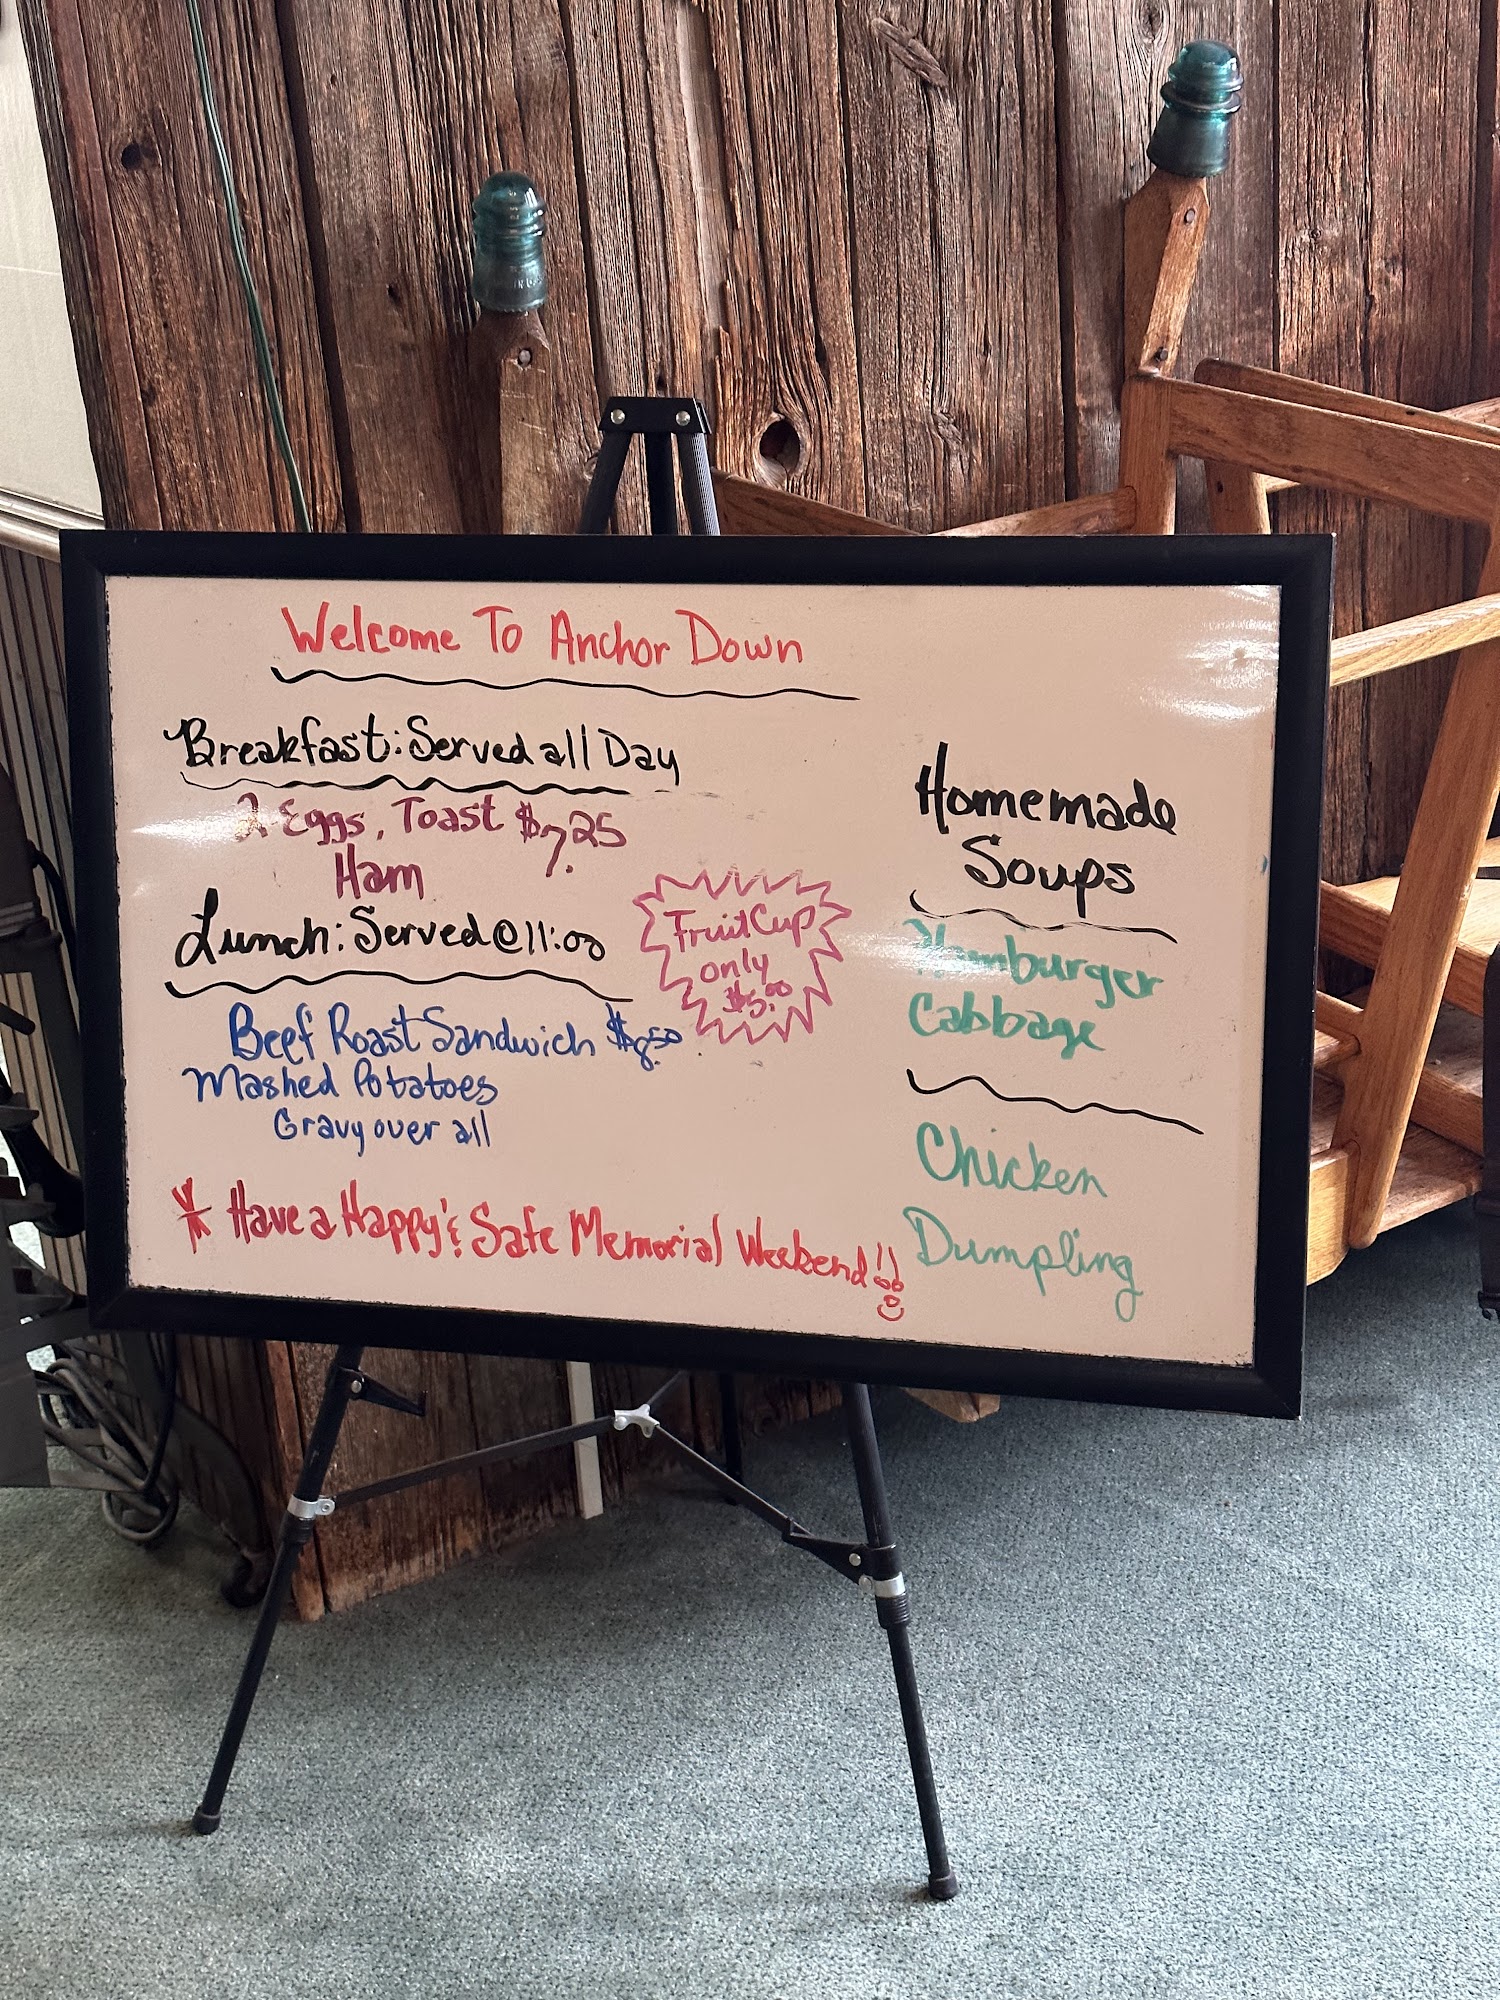 Welcome To Anchor Down
Breakfast: Served all Day
2 Eggs, Toast $7.25
Ham
Lunch: Served @ 11:00
Fruit Cup
only
$5.00
Beef Roast Sandwich $8.50
Mashed Potatoes
Gravy over all
* Have a Happy & Safe Memorial Weekend!!
Homemade
Soups
Hamburger
Cabbage
Chicken
Dumpling